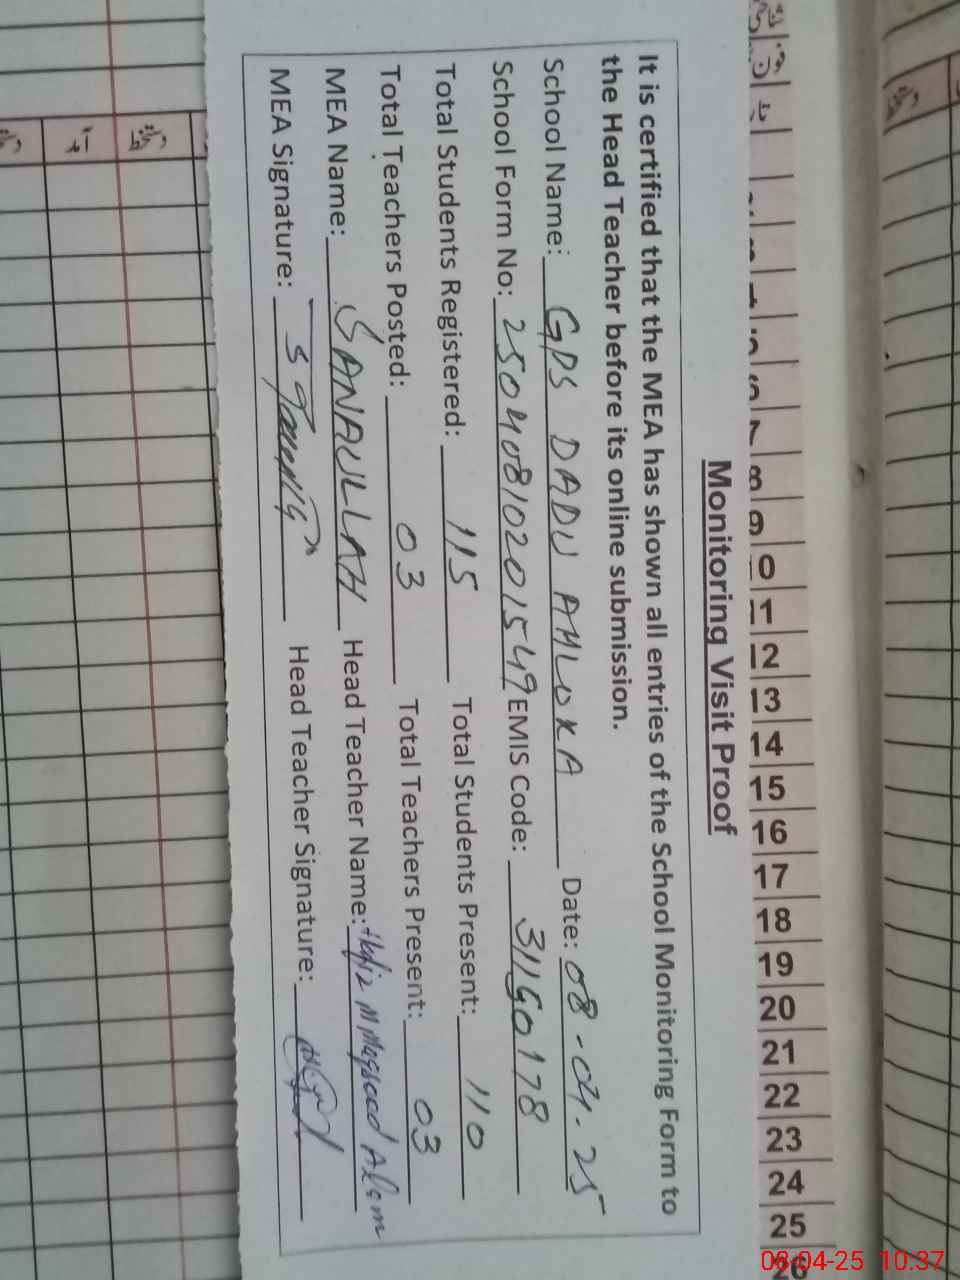 Monitoring Visit Proof
It is certified that the MEA has shown all entries of the School Monitoring Form to
the Head Teacher before its online submission.
School Name: GPS DADU AMLOKA Date: 08-04-25
School Form No: 25040810201549 EMIS Code: 31150178
Total Students Registered: 115 Total Students Present: 110
Total Teachers Posted: 03 Total Teachers Present: 03
MEA Name: SANAULLAH Head Teacher Name: Hafiz M Maqsood Alam
MEA Signature: Head Teacher Signature:
10
11
12
13
14
15
16
17
18
19
20
21
22
23
24
25
26
08-04-25 10:37